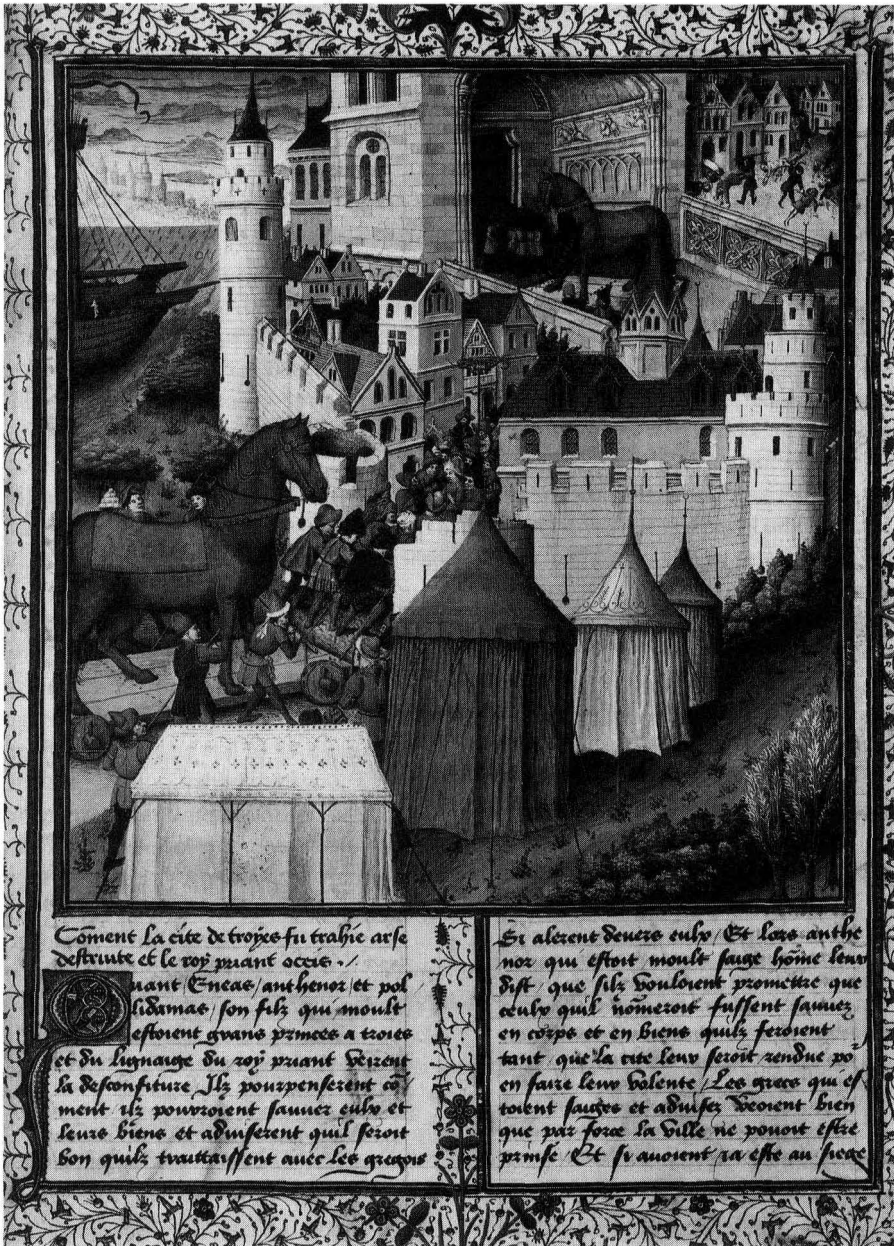 Cōment la cite de troyes fu trahie arse
destruite et le roy priant occis ·/·
Quant Eneas / anthenor et pol
lidamas / son filz qui moult
estoient grans princes a troies
et du lignaige du roy priant veirent
la desconfiture / Ilz pourpenserent cō
ment ilz pourroient sauuer eulx et
leurs biens et aduiserent quil seroit
bon quilz traittaissent auec les gregois
Si alerent deuers eulx / Et lors anthe
nor qui estoit moult saige hōme leur
dist / que silz vouloient promettre que
ceulx quil nōmeroit fussent sauuez
en corps et en biens quilz feroient
tant / que la cite leur seroit rendue po
en faire leur volente / Les grecs qui es
toient saiges et aduisez veoient bien
que par force la ville ne pouoit estre
prinse / Et si auoient ia este au siege